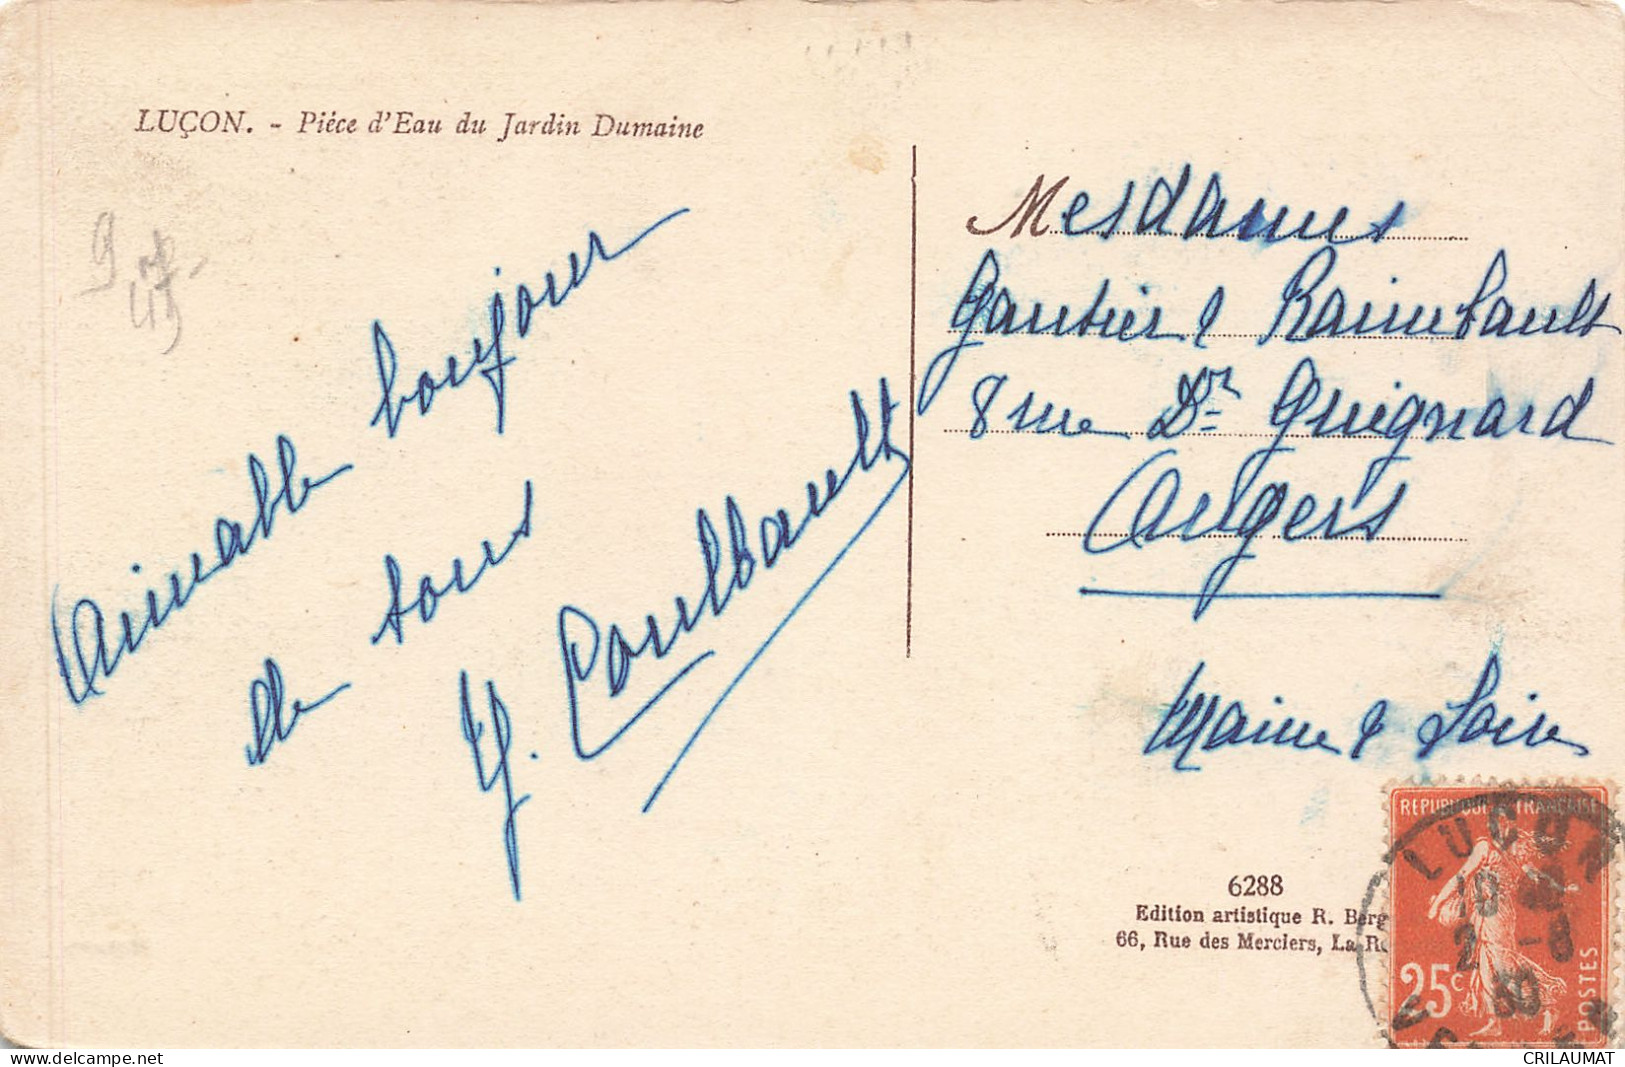 LUÇON. - Piéce d'Eau du Jardin Dumaine
Aimable bonjour
de tous
Y. Coulbault
Mesdames
Gautier & Raimbault
8 rue Dr Guignard
Angers
Maine & Loire
6288
Edition artistique R. Berg
66, Rue des Merciers, La R
REPUBLIQUE FRANÇAISE
25c
POSTES
LUÇON
2 -8
30
delcampe.net
CRILAUMAT